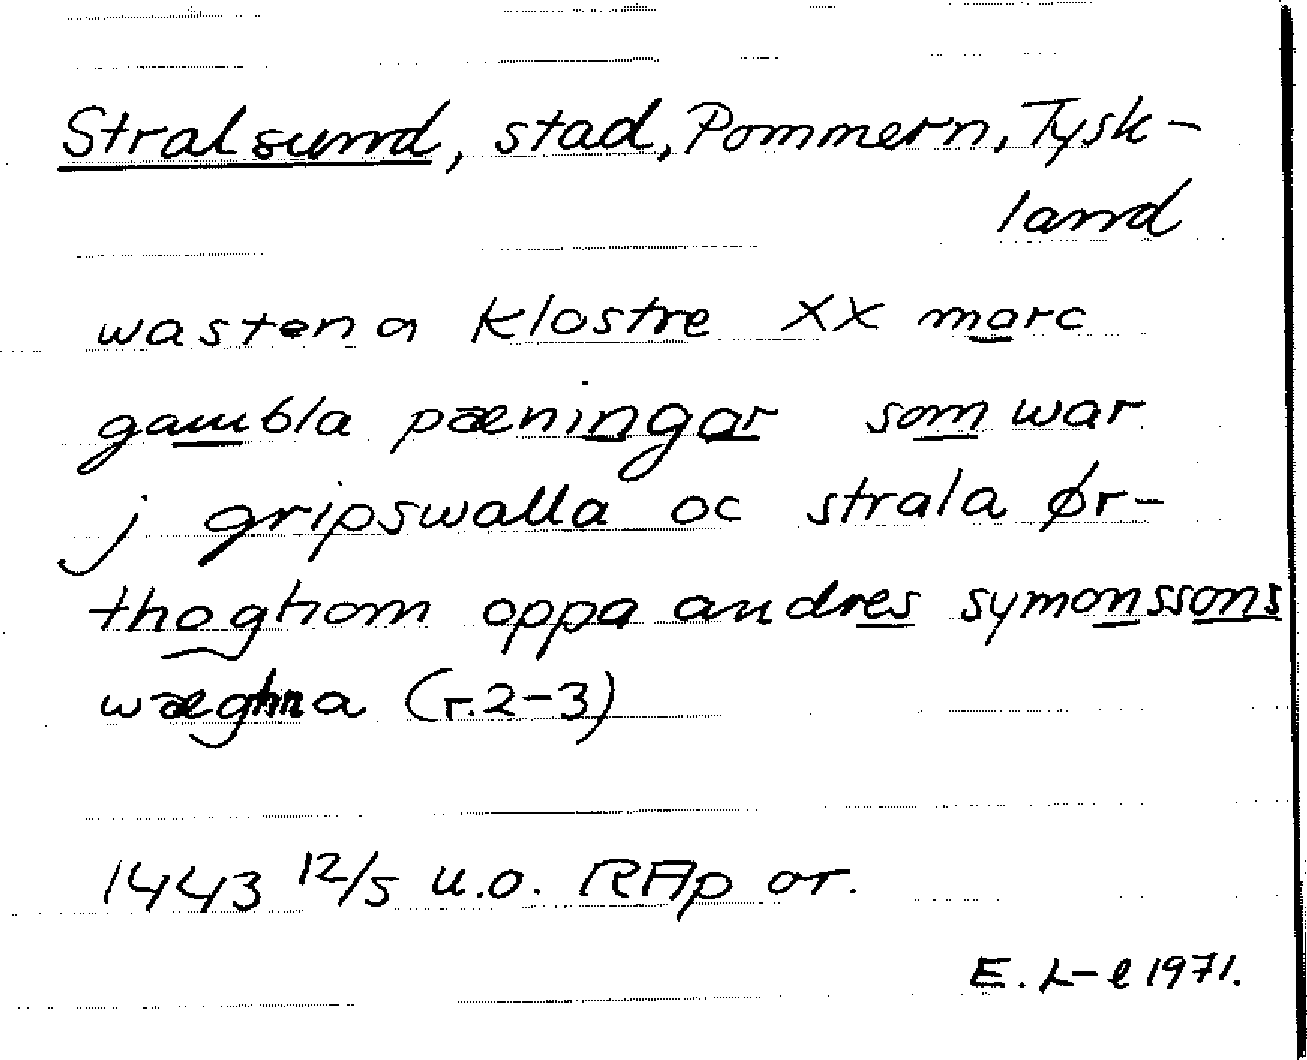 Stralsund, stad, Pommern, Tysk-
land
wastena klostre XX marc
gambla pæningar som war
j gripswalla oc strala ør-
thoghom oppa andres symonssons
wæghna (r.2-3)
1443 12/5 u.o. RAp or.
E. L-e 1971.